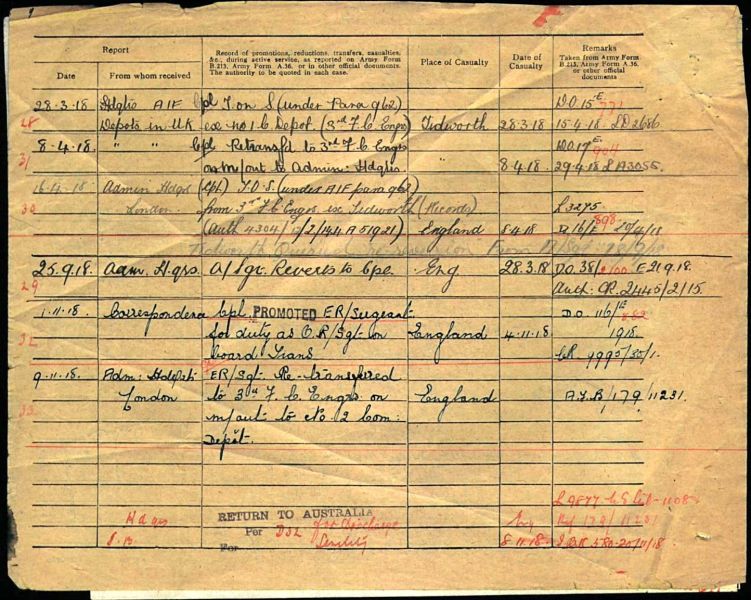 Report
Record of promotions, reductions, transfers, casualties,
&c., during active service, as reported on Army Form
B.213, Army Form A.36, or in other official documents.
The authority to be quoted in each case.
Place of Casualty
Date of
Casualty
Remarks
Taken from Army Form
B.213, Army Form A.36,
or other official
documents
Date
From whom received
28.3.18 Hdqrs AIF Cpl T. on S (under Para 962) D.O. 15 E 771
28 Depots in UK ex No 1 C Depot (3rd F.C. Engrs) Tidworth 28.3.18 15.4.18 LD 2686.
8.4.18. " " Cpl Retransfd to 3rd F.C. Engrs D.O. 17 E 904
31 on m/out to Admin: Hdqrs. " 8.4.18 29.4.18 LA3055.
16.4.18. Admin Hdqrs (Cpl) T.O.S. (under AIF para 962)
30 London. from 3rd F.C. Engrs. ex Tidworth (Records) L3275
(Auth 4304/12/2/144 A51921) England 8.4.18 D.16/E 898 20/4/18
Tidworth
25.9.18. Adm. Hqrs. A/Sgt. Reverts to Cpl. Eng 28.3.18 D.O. 38/2100 E 21.9.18.
29 Auth: CR. 2445/2/15.
1.11.18. Correspondence Cpl. PROMOTED ER/Sergeant D.O. 116/E 882
32 for duty as O.R/Sgt on England 4.11.18. 1918.
board Trans CR 9995/35/1.
9.11.18. Adm: Hdqrs ER/Sgt. Re-transferred
33 London to 3rd F.C. Engrs on England A.F.B/179/11231.
m/out to No. 2 Com:
Depôt.
Hdqrs RETURN TO AUSTRALIA
Per D32 for Discharge Eng
For Senility 8.11.18.